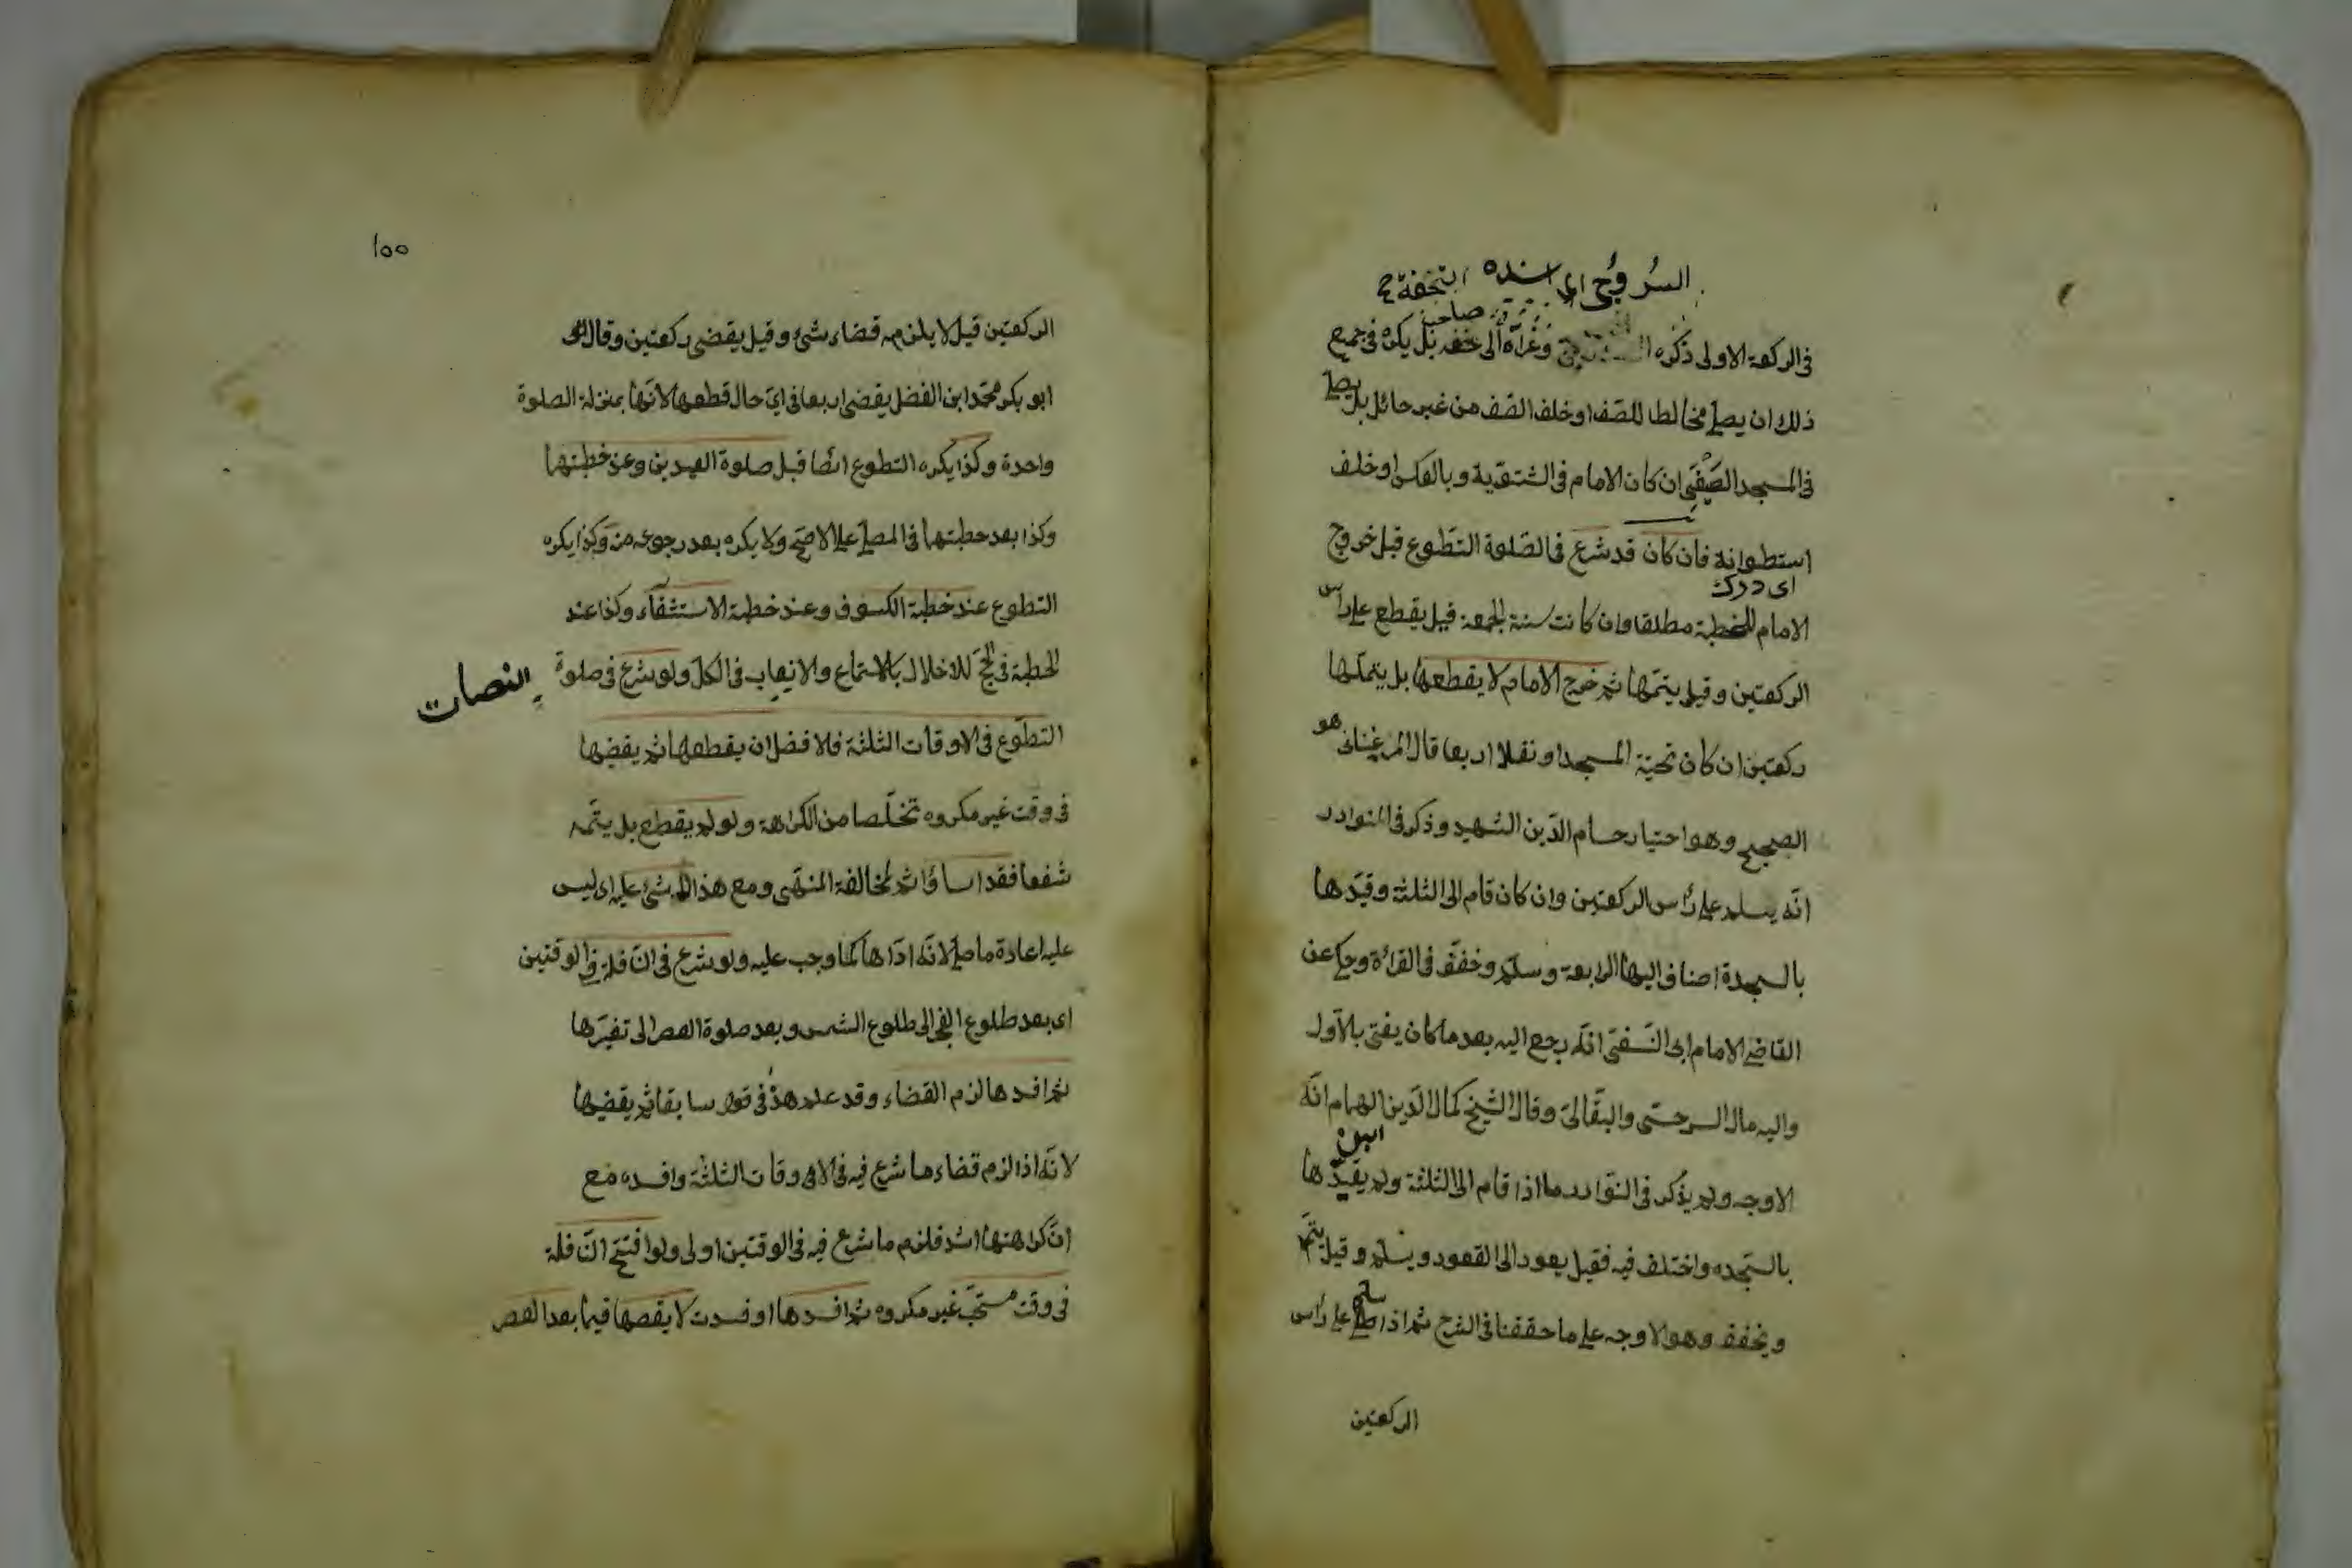 السروجي اي اسنده التحفة ح
صاحب
في الركعة الاولى ذكره وعزاه الى تحفه بل يكره في جميع
ذلك ان يصلي مخالطا للصف او خلف الصف من غير حائل بل يصلي
في المسجد الصيفي ان كان الامام في الشتوية وبالعكس او خلف
استطوانة فان كان قد شرع في الصلوة التطوع قبل خروج
اي درك
الامام للخطبة مطلقا وان كانت سنة الجمعة قيل يقطع على راس
الركعتين وقيل يتمها ثم خرج الامام لا يقطعها بل يتملها
ركعتين ان كان تحية المسجد او نفلا اربعا قال المرغيناني هو
الصحيح وهو احتيار حسام الدين الشهيد وذكر في النوادر
انه يسلم على رأس الركعتين وان كان قام الى الثلثة وقيدها
بالسجدة اضاف اليها الرابعة وسلم وخفف في القرائة وحكي عن
القاضي الامام ابي النسفي انه رجع اليه بعد ما كان يفتي بالاول
واليه مال السرحسي والبقالي وقال الشيخ كمال الدين الهمام انه
ابن
الاوجه ولم يذكر في النوادر ما اذا قام الى الثلثة ولم يقيدها
بالسجده واختلف فيه فقيل يعود الى القعود ويسلم وقيل يتم
ويخفف وهو الاوجه على ما حققنا في الشرح ثم اذا سلم على رأس
الركعتين
١٥٥
الركعتين قيل لا يلزمه قضاء شئ وقيل يقضي ركعتين وقال
ابو بكر محمد ابن الفضل يقضي اربعا في اي حال قطعها لانها بمنزلة الصلوة
واحدة وكذا يكره التطوع ايضا قبل صلوة العيدين وعند خطبتها
وكذا بعد خطبتها في المصلي على الاصح ولا يكره بعد رجوعه منه وكذا يكره
التطوع عند خطبة الكسوف وعند خطبة الاستثقاء وكذا عند
الخطبة في الحج للاخلال بالاستماع والانصات في الكل ولو شرع في صلوة
النصات
التطوع في الاوقات الثلثة فلافضل ان يقطعها ثم يقضيها
في وقت غير مكروه تخلصا من الكراهة ولو لم يقطع بل يتمه
شفعا فقد اساؤا ثم لمخالفة المنهي ومع هذا لا شئ عليه اي ليس
عليه اعادة ما صلي لانه اداها كما وجب عليه ولو شرع في النافلة في الوقتين
اي بعد طلوع الفجر الى طلوع الشمس وبعد صلوة العصر الى تغيرها
ثم افسدها لزم القضاء وقد علم هذ في قوله سابقا ثم يقضيها
لانه اذا لزم قضاء ما شرع فيه في الاوقات الثلثة وافسده مع
ان كراهتها اشد فلزم ما شرع فيه في الوقتين اولى ولو افتتح النافلة
في وقت مستحب غير مكروه ثم افسدها او فسدت لا يقضها فيما بعد العصر